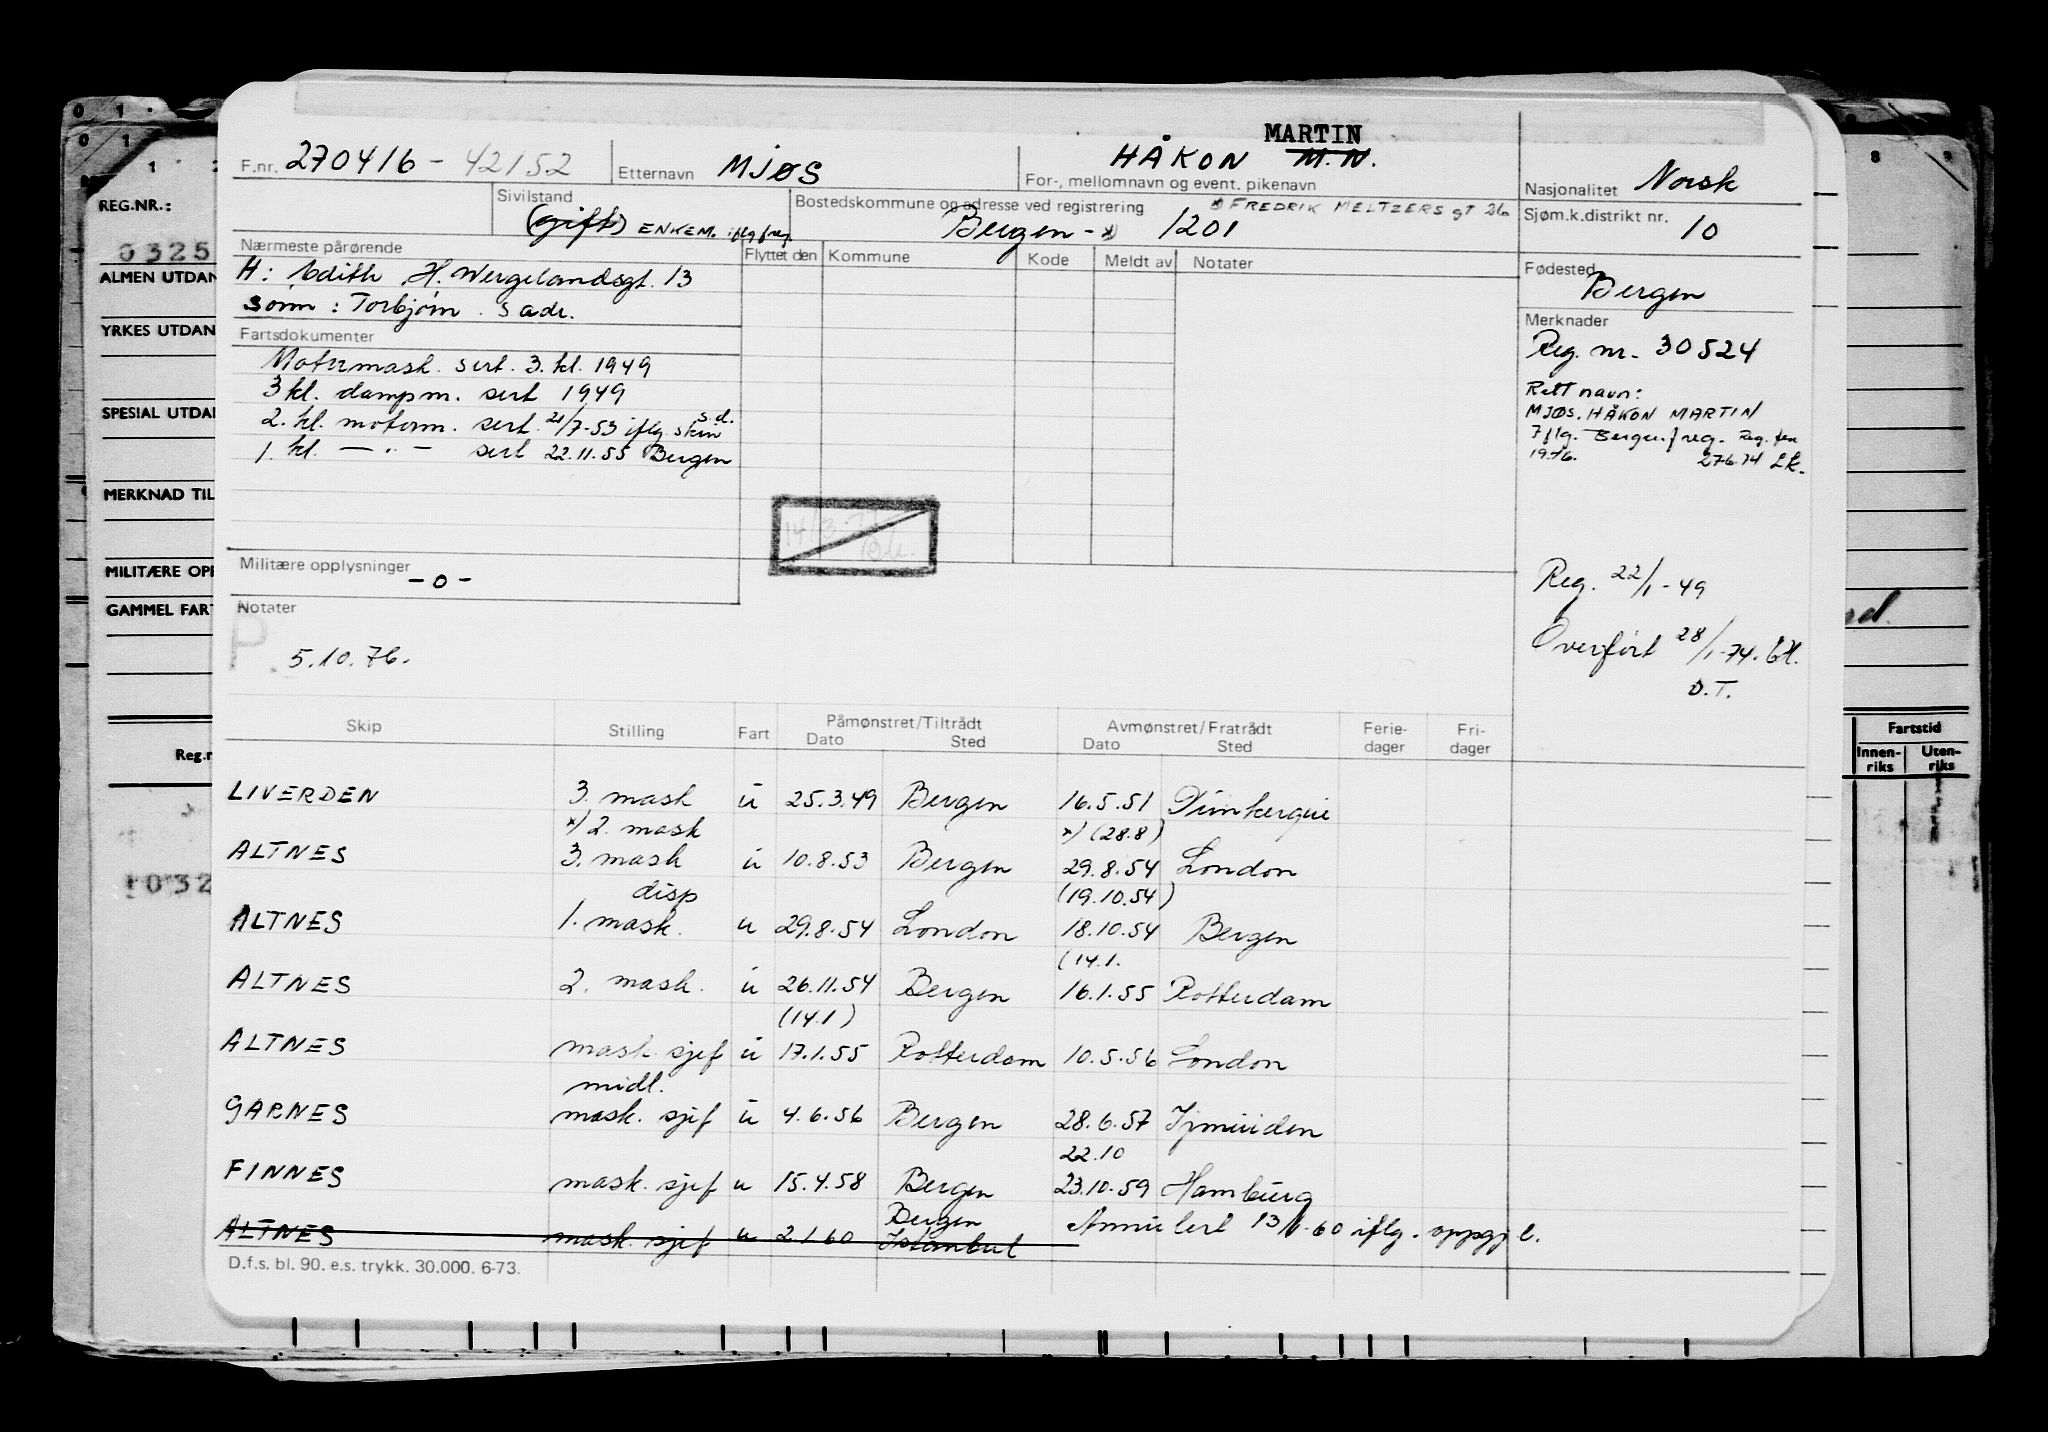 MARTIN
F.nr. 270416 - 42152 Etternavn MJØS HÅKON M.N.
For-, mellomnavn og event. pikenavn
Nasjonalitet Norsk
Sivilstand (gift) ENKEM. iflg freg.
Bostedskommune og adresse ved registrering x FREDRIK MELTZERS GT 26
Bergen - x) 1201
Sjøm.k.distrikt nr. 10
Nærmeste pårørende
H: Edith H. Wergelandsgt. 13
sønn: Torbjørn s adr.
Flyttet den Kommune Kode Meldt av Notater
Fødested Bergen
Fartsdokumenter
Motormask. sert. 3. kl. 1949
3 kl. dampm. sert 1949
2. kl. motorm. sert. 21/7-53 iflg. s.d. skin
1. kl. - " - sert 22.11.55 Bergen
Merknader
Reg. nr. 30524
Rett navn:
MJØS, HÅKON MARTIN
Iflg. Bergen f reg. Reg. fen
1976. 276.74 Lk.
14/3-
Militære opplysninger -0-
Notater
P. 5.10.76.
Reg. 22/1-49
Overført 28/1-74.
D.T.
Skip Stilling Fart Påmønstret/Tiltrådt Avmønstret/Fratrådt Ferie-dager Fri-dager
Dato Sted Dato Sted
LIVERDEN 3. mask u 25.3.49 Bergen 16.5.51 Dunkerque
x) 2. mask x) (28.8)
ALTNES 3. mask u 10.8.53 Bergen 29.8.54 London
disp (19.10.54)
ALTNES 1. mask. u 29.8.54 London 18.10.54 Bergen
(14.1.
ALTNES 2. mask. u 26.11.54 Bergen 16.1.55 Rotterdam
(14.1)
ALTNES mask. sjef u 17.1.55 Rotterdam 10.5.56 London
midl.
GARNES mask. sjef u 4.6.56 Bergen 28.6.57 Ijmuiden
22.10
FINNES mask. sjef u 15.4.58 Bergen 23.10.59 Hamburg
Bergen
ALTNES mask. sjef u 2 1 60 Istanbul Annulert 13/1-60 iflg. oppgj.l.
D.f.s. bl. 90. e.s. trykk. 30.000. 6-73.
REG.NR.:
0325
ALMEN UTDAN
YRKES UTDAN
SPESIAL UTDA
MERKNAD TIL
MILITÆRE OPP
GAMMEL FART
Reg.n
1032
Fartstid
Innen-riks Uten-riks